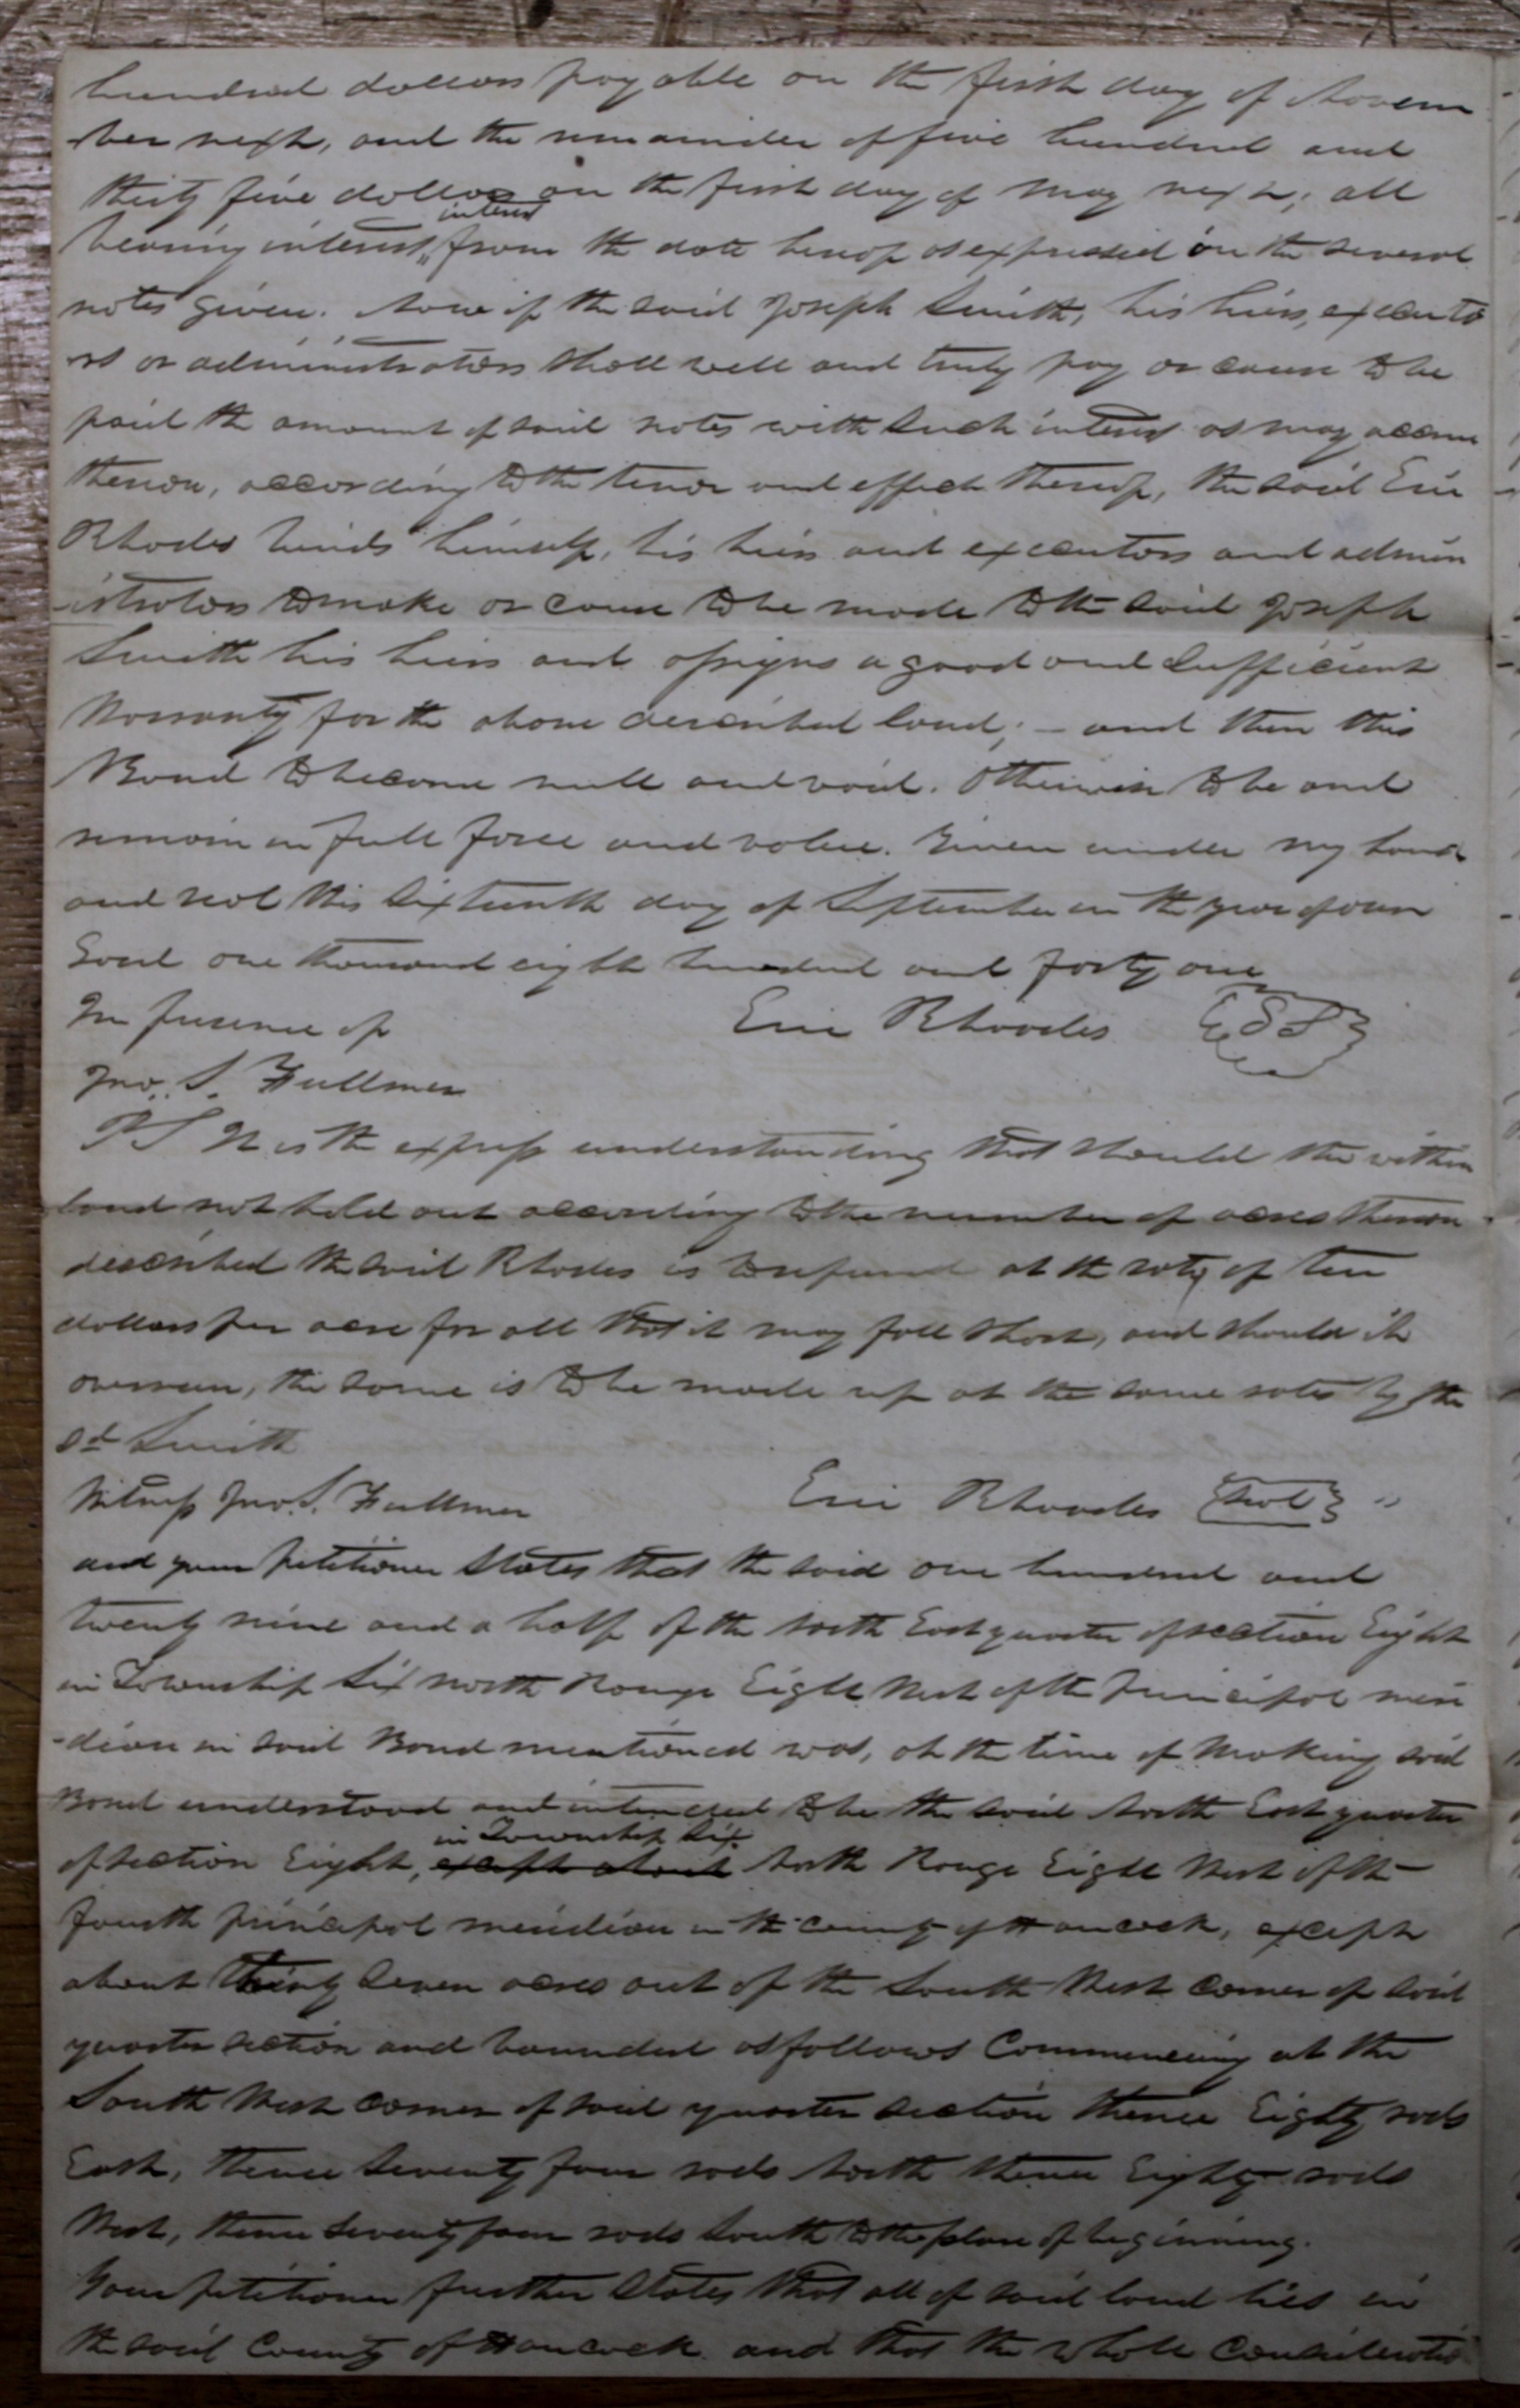 hundred dollars payable on the first day of Novem
-ber next, and the remainder of five hundred and
thirty five dollars on the first day of May next; all
interest
bearing interest, from the date hereof as expressed on the several
notes given. Now if the said Joseph Smith, his heirs, executo
rs or administrators shall well and truly pay or cause to be
paid the amount of said notes with such interest as may accrue
thereon, according to the tenor and effect thereof, the said Erie
Rhodes binds himself, his heirs and executors and admin
-istrators to make or cause to be made to the said Joseph
Smith his heirs and assigns a good and sufficient
Warranty for the above described land; – and then this
Bond to become null and void. Otherwise to be and
remain in full force and value. Given under my hand
and seal this Sixteenth day of September in the year of our
Lord one thousand eight hundred and forty one
In presence of Erie Rhodes
Jno. S. Fullmer
PS It is the express understanding that should the within
land not hold out according to the number of acres thereon
described the said Rhodes is to refund at the rate of ten
dollars per acre for all that it may fall short, and should it
overrun, the same is to be made up at the same rates by the
sd Smith
Witness Jno. S. Fullmer Erie Rhodes seal "
and your petitioner States that the said one hundred and
twenty nine and a half of the North East quarter of section Eight
in Township Six North Range Eight West of the Principal meri
-dian in said Bond mentioned was, at the time of making said
Bond understood and intended to be the said North East quarter
in Township Six
of section Eight, except about North Range Eight West of the
fourth principal meridian in the county of Hancock, except
about thirty seven acres out of the South West corner of said
quarter section and bounded as follows Commencing at the
South West corner of said quarter section thence Eighty rods
East, thence seventy four rods North thence Eighty rods
West, thence seventy four rods South to the place of beginning.
Your petitioner further States that all of said land lies in
the said County of Hancock and that the whole consideratio